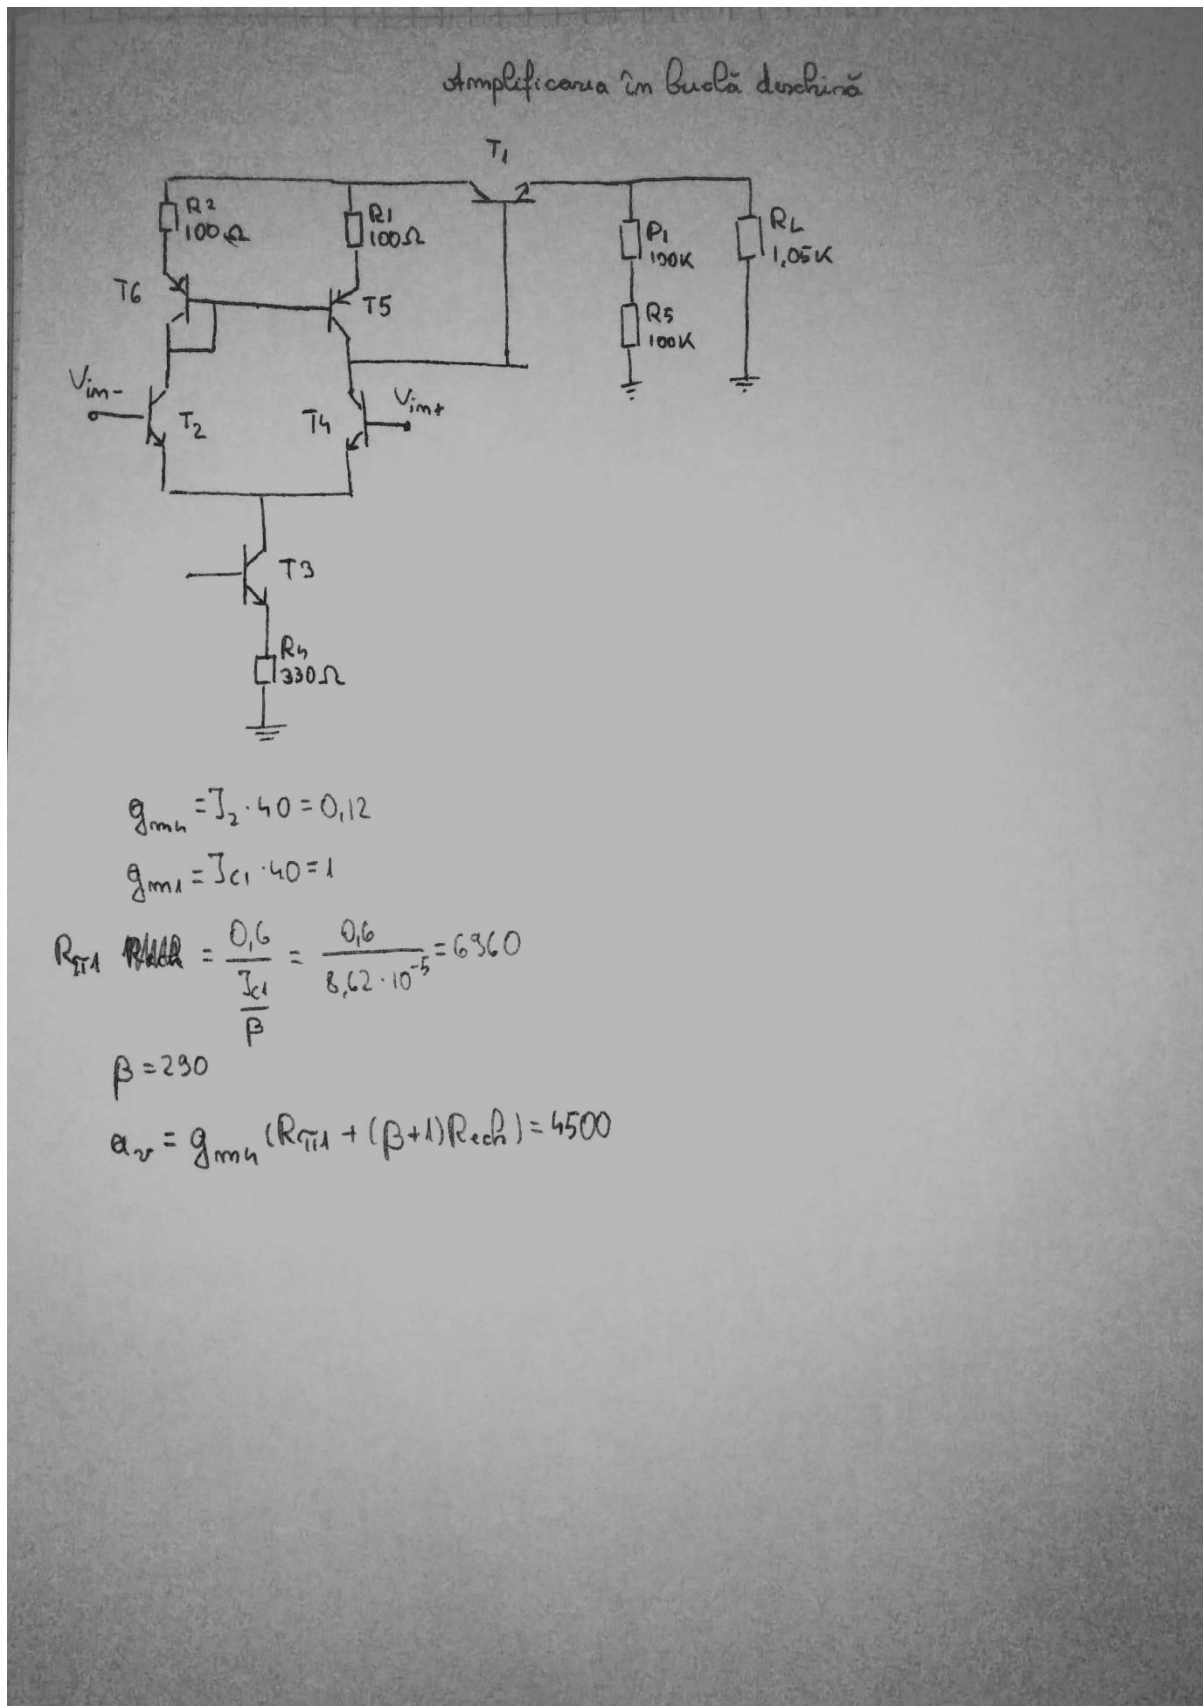 Amplificarea în buclă deschisă
T1
R2
100Ω
R1
100Ω
P1
100K
RL
1,05K
T6
T5
R5
100K
Vin-
T2
T4
Vin+
T3
R4
330Ω
gm4 = I2 · 40 = 0,12
gm1 = IC1 · 40 = 1
Rπ1 = 0,6 / (IC1 / β) = 0,6 / 8,62 · 10^-5 = 6960
β = 290
av = gm4 (Rπ1 + (β+1) Rech) = 4500